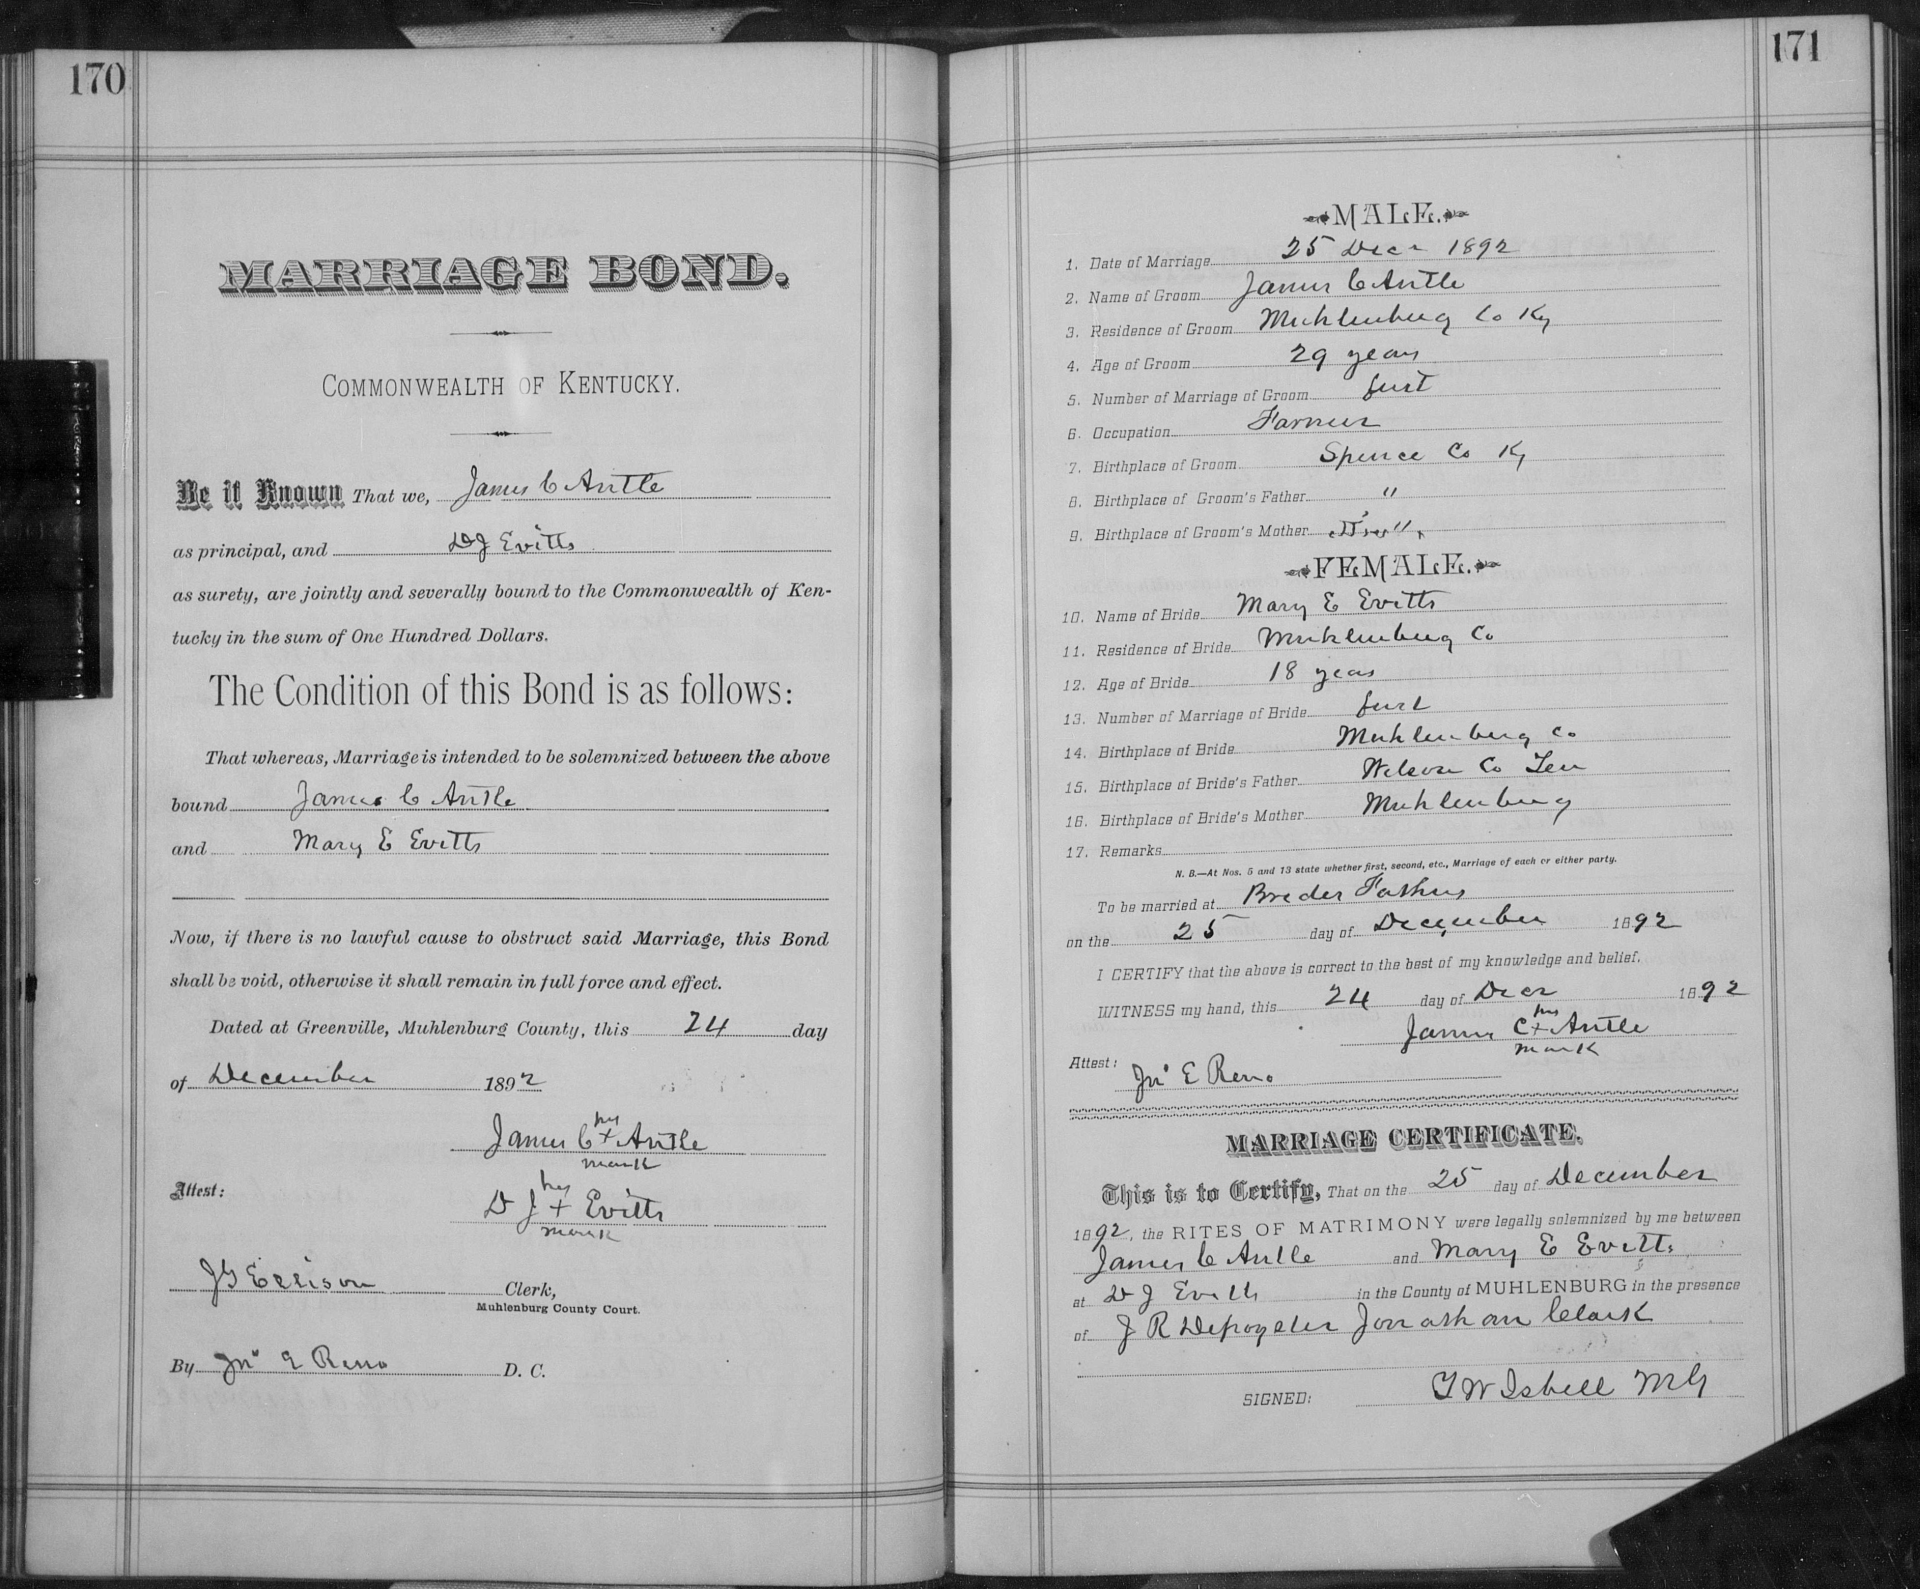 170
MARRIAGE BOND.
COMMONWEALTH OF KENTUCKY.
Be it Known That we, James C Antle
as principal, and D J Evitts
as surety, are jointly and severally bound to the Commonwealth of Ken-
tucky in the sum of One Hundred Dollars.
The Condition of this Bond is as follows:
That whereas, Marriage is intended to be solemnized between the above
bound James C Antle
and Mary E Evitts
Now, if there is no lawful cause to obstruct said Marriage, this Bond
shall be void, otherwise it shall remain in full force and effect.
Dated at Greenville, Muhlenburg County, this 24 day
of December 1892
his
James C + Antle
mark
Attest:
his
D J + Evitts
mark
J G Ellison Clerk,
Muhlenburg County Court.
By Jno E Reno D. C.
171
MALE.
1. Date of Marriage 25 Decr 1892
2. Name of Groom James C Antle
3. Residence of Groom Muhlenburg Co Ky
4. Age of Groom 29 years
5. Number of Marriage of Groom first
6. Occupation Farmer
7. Birthplace of Groom Spence Co Ky
8. Birthplace of Groom's Father "
9. Birthplace of Groom's Mother "
FEMALE.
10. Name of Bride Mary E Evitts
11. Residence of Bride Muhlenburg Co
12. Age of Bride 18 years
13. Number of Marriage of Bride first
14. Birthplace of Bride Muhlenburg Co
15. Birthplace of Bride's Father Wilson Co Ten
16. Birthplace of Bride's Mother Muhlenburg
17. Remarks
N. B.—At Nos. 5 and 13 state whether first, second, etc., Marriage of each or either party.
To be married at Brides Fathers
on the 25 day of December 1892
I CERTIFY that the above is correct to the best of my knowledge and belief.
WITNESS my hand, this 24 day of Decr 1892
his
James C + Antle
mark
Attest:
Jno E Reno
MARRIAGE CERTIFICATE.
This is to Certify, That on the 25 day of December
1892, the RITES OF MATRIMONY were legally solemnized by me between
James C Antle and Mary E Evitts
at D J Evitts in the County of MUHLENBURG in the presence
of J R Depoyster Jonathan Clark
SIGNED: T W Isbell M G